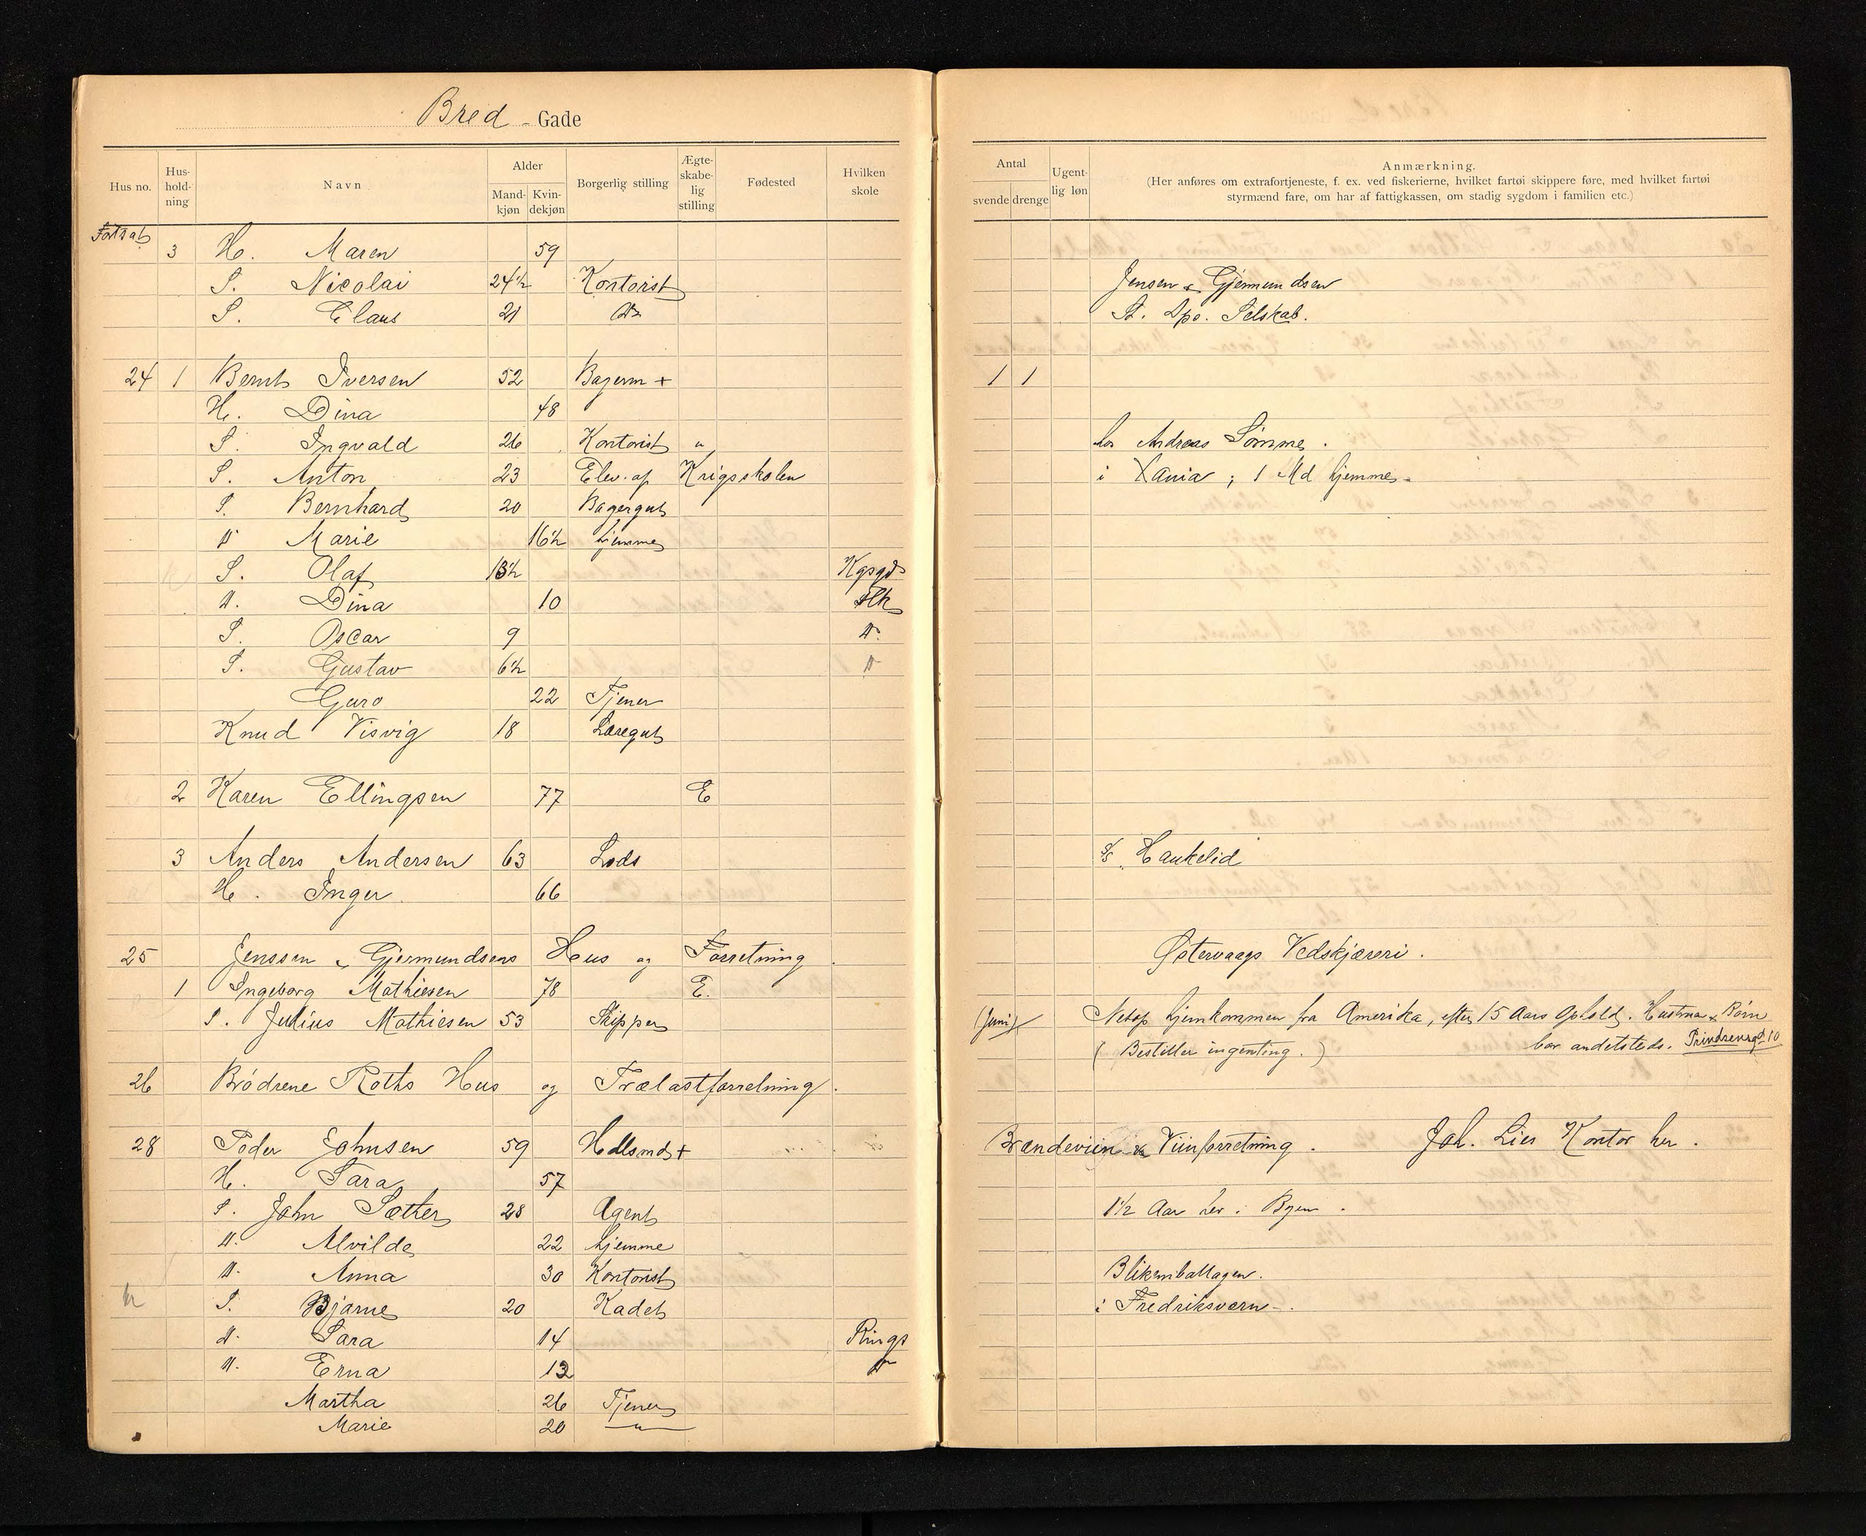 Bred - Gade
Hus no. Hus-hold-ning Navn Alder Mand-kjøn Kvin-dekjøn Borgerlig stilling Ægte-skabe-lig stilling Fødested Hvilken skole
Antal svende drenge Ugent-lig løn Anmærkning.
(Her anføres om extrafortjeneste, f. ex. ved fiskerierne, hvilket fartøi skippere føre, med hvilket fartøi
styrmænd fare, om har af fattigkassen, om stadig sygdom i familien etc.)
Fortsat 3 H. Maren 59
S. Nicolai 24½ Kontorist Jensen & Gjermundsen
S. Claus 21 Do St. Dps. Selskab.
24 1 Bernt Iversen 52 Bagerm + 1 1
H. Dina 48
S. Ingvald 26 Kontorist " hos Andreas Sømme.
S. Anton 23 Elev. af Krigsskolen i Xania; 1 Md hjemme.
S. Bernhard 20 Bagergut
D Marie 16½ hjemme
S. Olaf 13½ Kgsgd
D. Dina 10 Flk
S. Oscar 9 D.
S. Gustav 6½ D
Guro 22 Tjener
Knud Visvig 18 Læregut
2 Karen Ellingsen 77 E
3 Anders Andersen 63 Lods S/S. Haukelid
H. Inger 66
25 Jenssen & Gjermundsens Hus og Forretning. Østervaags Vedskjæreri.
1 Ingeborg Mathiesen 78 E.
S. Julius Mathiesen 53 Skipper (Juni) Netop hjemkommen fra Amerika, efter 15 Aars Ophold. Hustru & Børn
( Bestiller ingenting. ) bor andetsteds. Prindsensgd. 10
26 Brødrene Roths Hus og Trælastforretning.
28 Peder Johnsen 59 Hdlsmd + Brændeviin & Viinforretning. Joh. Lies Kontor her.
H. Sara 57
S. John Sæther 28 Agent 1½ Aar her i Byen.
D. Alvilde 22 hjemme
D. Anna 30 Kontorist Blikemballagen.
S. Bjarne 20 Kadet i Fredriksværn.
D. Sara 14 Rings
D. Erna 13 D
Martha 26 Tjener
Marie 20 "